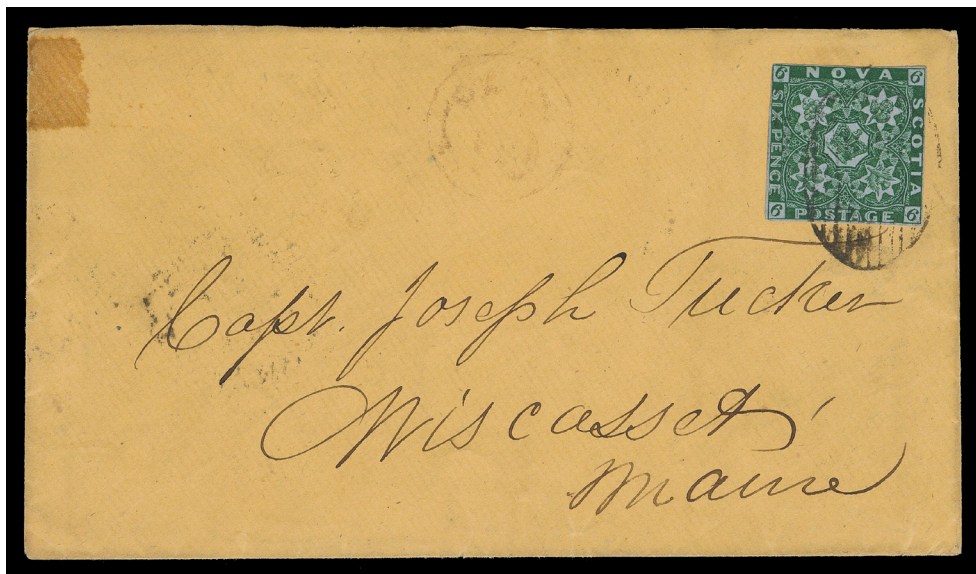 6 NOVA 6
SIX PENCE
SCOTIA
6 POSTAGE 6
Capt. Joseph Tucker
Wiscasset,
Maine